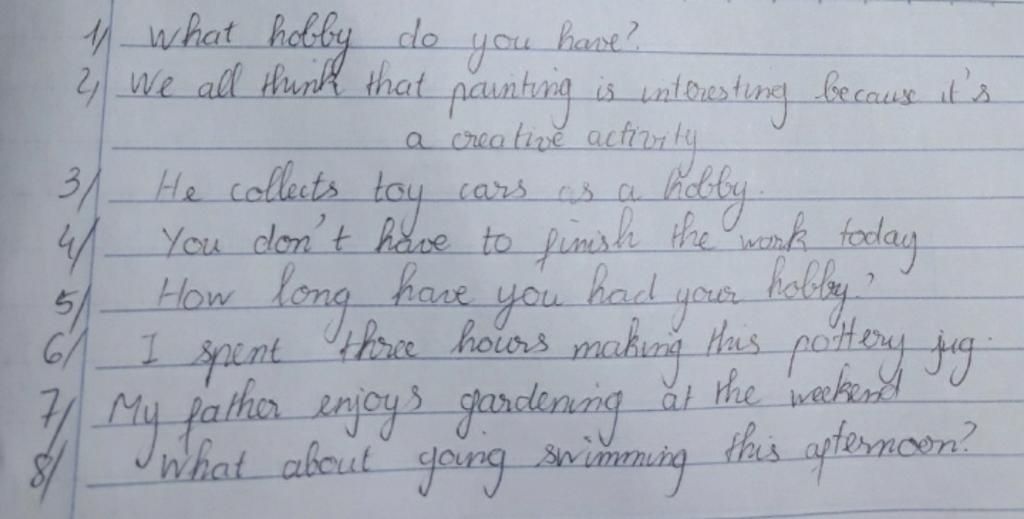 1/ What hobby do you have?
2/ We all think that painting is interesting because it's
a creative activity
3/ He collects toy cars as a hobby.
4/ You don't have to finish the work today
5/ How long have you had your hobby?
6/ I spent three hours making this pottery jug.
7/ My father enjoys gardening at the weekend
8/ What about going swimming this afternoon?